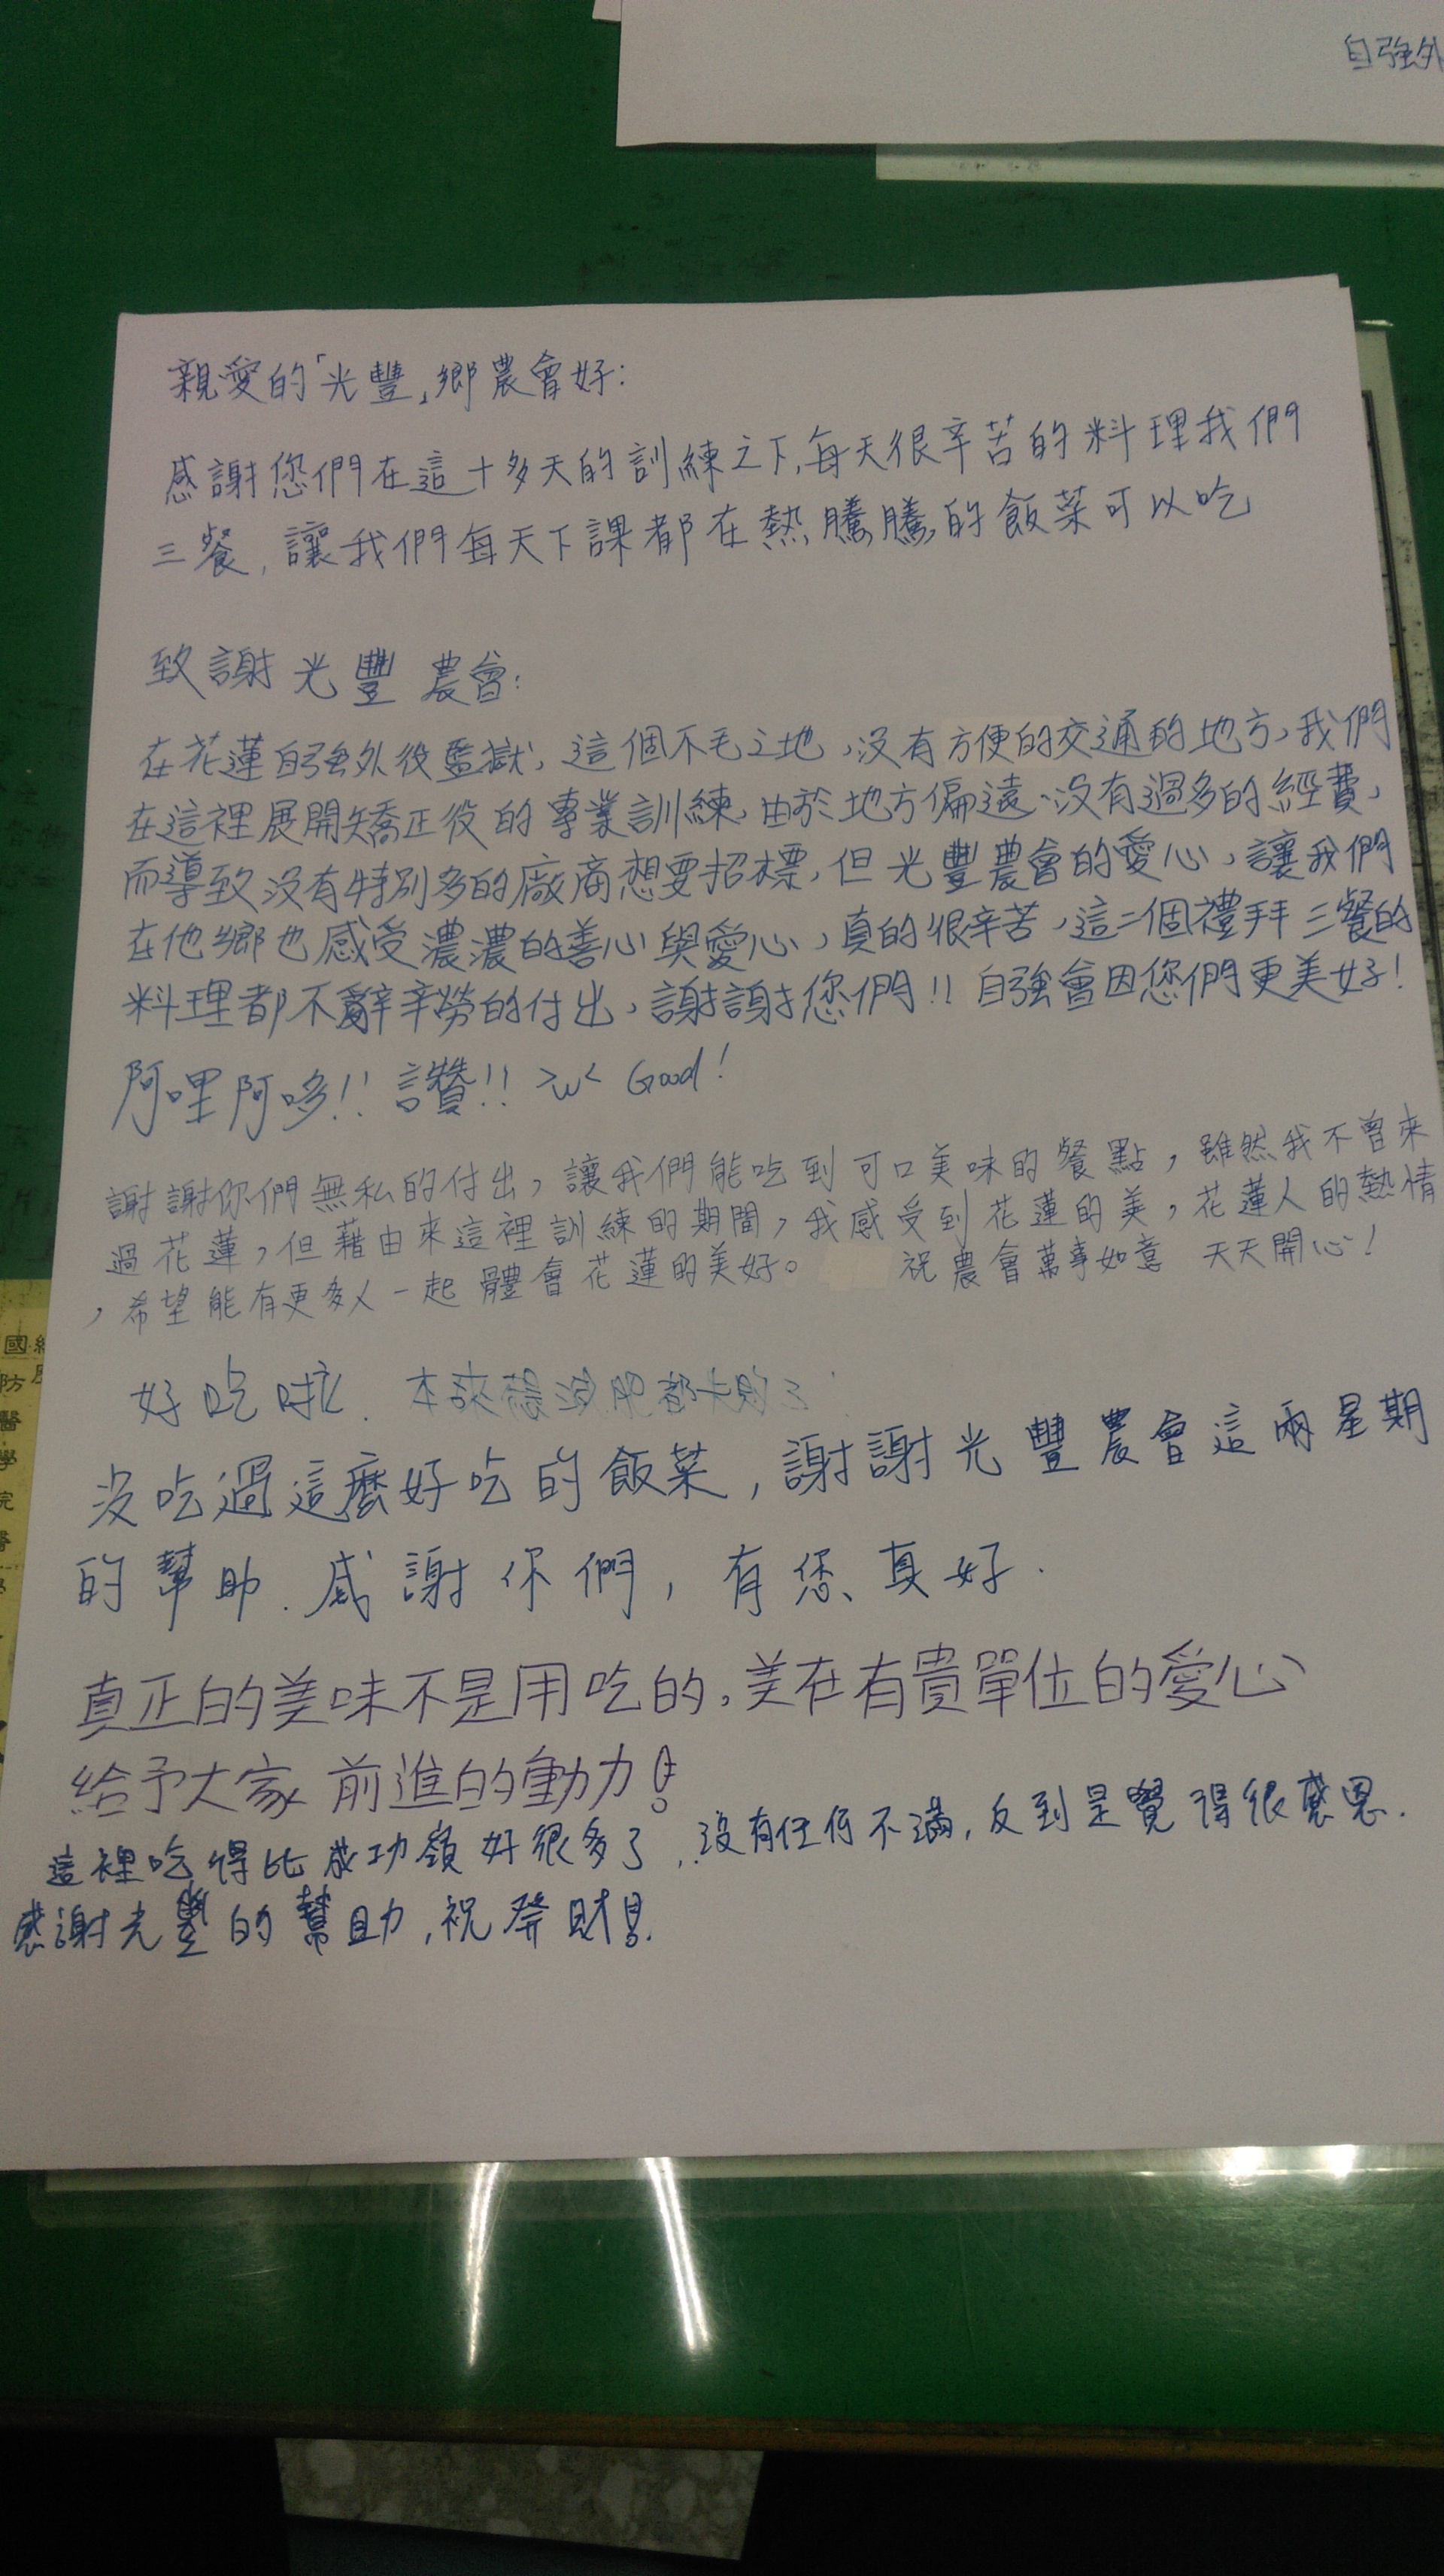 自強外
親愛的「光豐」鄉農會好:
感謝您們在這十多天的訓練之下,每天很辛苦的料理我們
三餐,讓我們每天下課都在熱騰騰的飯菜可以吃
致謝 光豐 農會:
在花蓮自強外役監獄,這個不毛之地,沒有方便的交通的地方,我們
在這裡展開矯正役的專業訓練,由於地方偏遠、沒有過多的經費,
而導致沒有特別多的廠商想要招標,但光豐農會的愛心,讓我們
在他鄉也感受濃濃的善心與愛心,真的很辛苦,這二個禮拜三餐的
料理都不辭辛勞的付出,謝謝您們!! 自強會因您們更美好!
阿哩阿哆!! 讚!! >w< Good!
謝謝你們無私的付出,讓我們能吃到可口美味的餐點,雖然我不曾來
過花蓮,但藉由來這裡訓練的期間,我感受到花蓮的美,花蓮人的熱情
,希望能有更多人一起體會花蓮的美好。 祝農會萬事如意 天天開心!
好吃啦. 本來 減肥都失敗了
沒吃過這麼好吃的飯菜,謝謝光豐農會這兩星期
的幫助.感謝你們,有您真好.
真正的美味不是用吃的,美在有貴單位的愛心
給予大家前進的動力!
這裡吃得比成功嶺好很多了,沒有任何不滿,反到是覺得很感恩.
感謝光豐的幫助,祝發財
國
防
醫
學
院